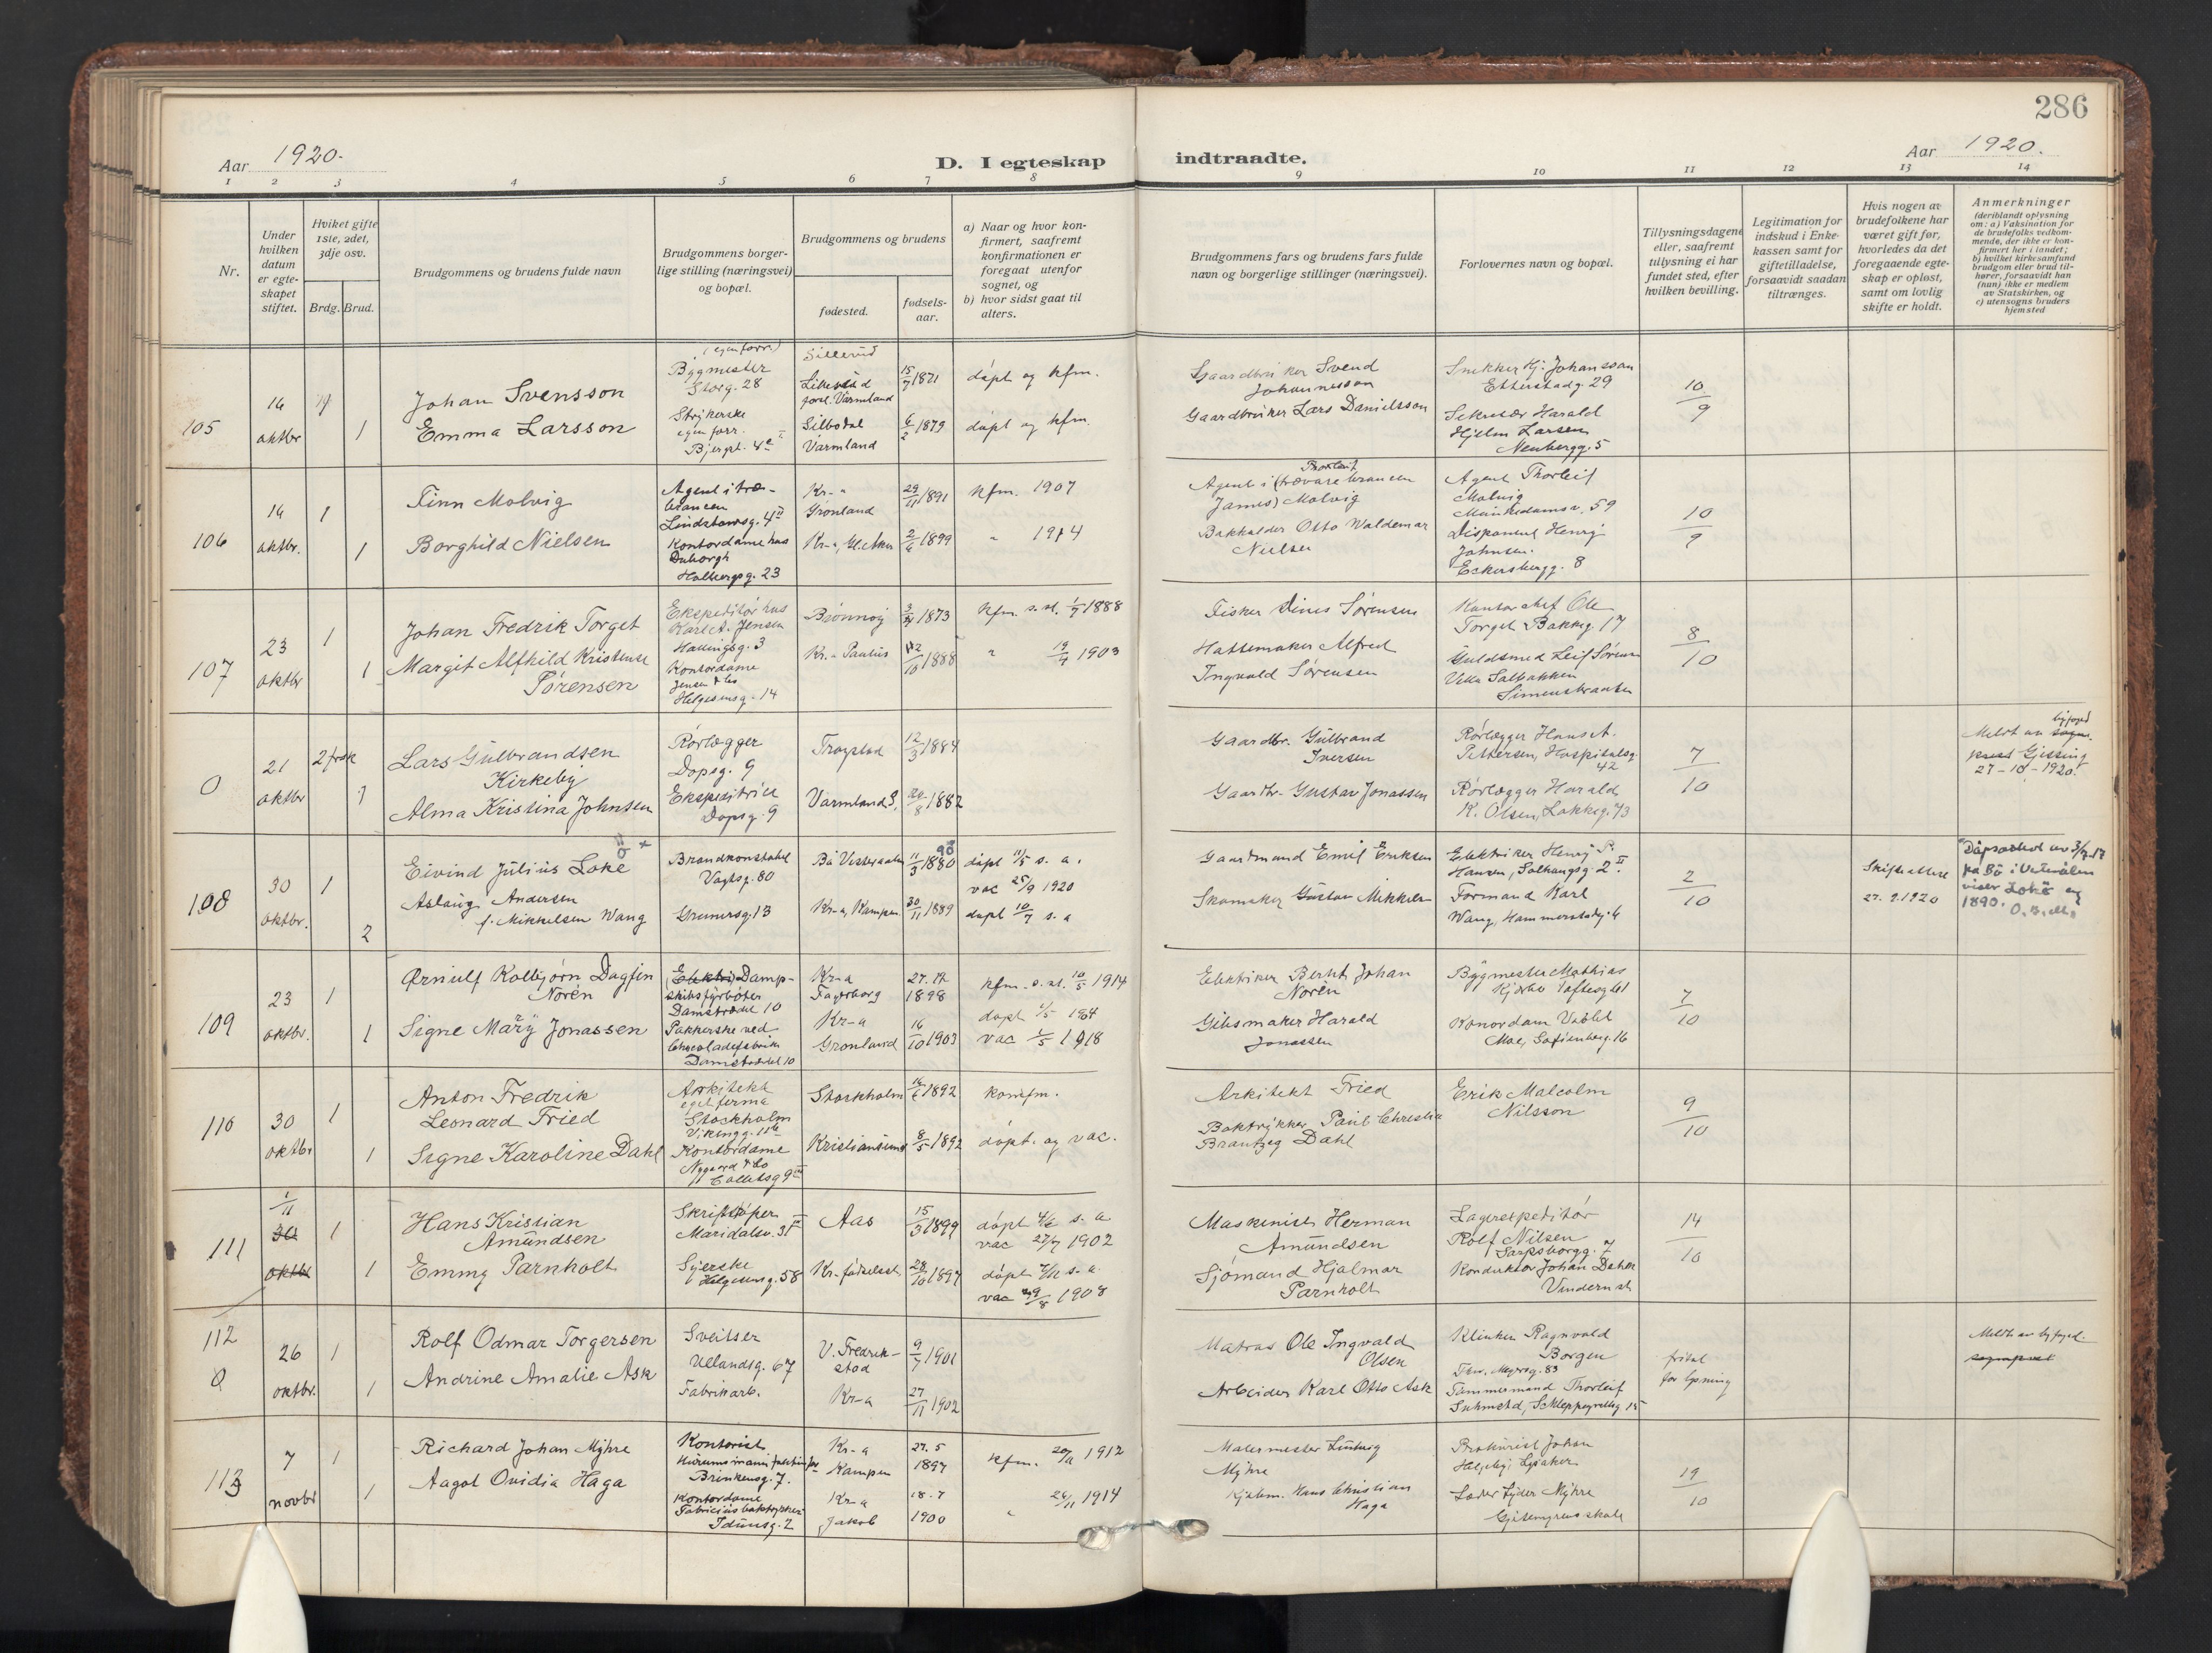 286
Aar 1920.
D. I egteskap
indtraadte.
Aar 1920.
1 2 3 4 5 6 7 8 9 10 11 12 13 14
Nr.
Under
hvilken
datum
er egte-
skapet
stiftet.
Hviket gifte
1ste, 2det,
3dje osv.
Brdg. Brud.
Brudgommens og brudens fulde navn
Brudgommens borger-
lige stilling (næringsvei)
og bopæl.
Brudgommens og brudens
fødested.
fødsels-
aar.
a) Naar og hvor kon-
firmert, saafremt
konfirmationen er
foregaat utenfor
sognet, og
b) hvor sidst gaat til
alters.
Brudgommens fars og brudens fars fulde
navn og borgerlige stillinger (næringsvei).
Forlovernes navn og bopæl.
Tillysningsdagene
eller, saafremt
tullysning ei har
fundet sted, efter
hvilken bevilling.
Legitimation for
indskud i Enke-
kassen samt for
giftetilladelse,
forsaavidt saadan
tiltrænges.
Hvis nogen av
brudefolkene har
været gift før,
hvorledes da det
foregaaende egte-
skap er opløst,
samt om lovlig
skifte er holdt.
Anmerkninger
(deriblandt oplysning
om: a) Vaksination for
de brudefolks vedkom-
mende, der ikke er kon-
firmert her i landet;
b) hvilket kirkesamfund
brudgom eller brud til-
hører, forsaavidt han
(hun) ikke er medlem
av Statskirken, og
c) utensogns bruders
hjemsted
105
16
oktbr
1
Johan Svensson
Emma Larsson
Bygmester
Storg. 28
Strykerske
egen forr.
Sillerud
Värmland
Silbodal
Värmland
15/7 1871
6/2 1879
døpt og kfm.
døpt og kfm.
Gaardbruker Svend
Johannesson
Gaardbruker Lars Danielsson
Snekker Hj. Johansson
Etterstadg. 29
Sekretær Harald
Hjelm Larsen
Neubergg. 5
10/9
106
16
oktbr.
1
1
Finn Molvig
Borghild Nielsen
Agent i træ-
brancen
Lindstowsg. 4 II
Kontordame hos
Duborgh
Holbergsg. 23
Kr-a
Grønland
Kr-a, Gl. Aker
29/11 1891
2/6 1899
kfm. 1907
" 1914
Thorleif
Agent i (trævarebrancen
James) Molvig
Bakholder Otto Waldemar
Nielsen
Agent Thorleif
Molvig
Munkedamsv. 59
Disponent Henry
Johnsen.
Eckersbergg. 8
10/9
107
23
oktbr
1
1
Johan Fredrik Torget
Margit Alfhild Kristense
Sørensen
Ekspeditør hos
Karl A. Jensen
Hallingsg. 3
Kontordame
Jensen & Co
Helgesensg. 14
Brønnøy
Kr.a Paulus
1873
1888
kfm. s. st. 1/7 1888
" 19/4 1903
Fisker Dines Sørensen
Hattemaker Alfred
Ingvald Sørensen
Kontorchef Ole
Torget Bakkeg. 17
Guldsmed Leif Sørensen
Villa Solbakken
Simensbraaten
8/10
0
21
oktbr
2 frask
1
Lars Gulbrandsen
Kirkeby
Alma Kristina Johnsen
Rørlægger
Dopsg. 9
Ekspeditrice
Dopsg. 9
Trøgstad
Värmland S.
12/3 1884
20/8 1882
Gaardbr. Gulbrand
Iversen
Gaardbr. Gustav Jonassen
Rørlægger Hans A.
Pettersen, Hospitalsg
42
Rørlægger Harald
K. Olsen, Lakkeg. 73
7/10
Meldt av byfoged
Gjessing
27-10-1920.
108
30
oktbr.
1
2
Eivind Julius Loke
Aslaug Andersen
f. Mikkelsen Wang
Brandkonstabel
Vogtsg. 80
Grünersg. 13
Bø Vesteraalen
Kr-a, Kampen
11/3 1880
90
30/11 1889
døpt 11/5 s. a.
vac 25/9 1920
døpt 10/7 s. a
Gaardmand Emil Eriksen
Skomaker Gustav Mikkelsen
Elektriker Henry S.
Hansen, Solhaugsg. 2 II
Formand Karl
Wang, Hammerstadg. 6
2/10
Skifteattest
27.9.1920
Dåpsattest av 3/9.17
fra Bø i Vesterålen
viser Lokö og
1890. O.B.M.
109
23
oktbr.
1
1
Ørnulf Kolbjørn Dagfin
Norén
Signe Mary Jonassen
(Elektri) Damp-
skibsfyrbøter
Damstrædet 10
Pakkerske ved
Chocoladefabrik
Damstrædet 10
Kr-a
Fagerborg
Kr-a
Grønland
27.12
1898
16/10 1903
kfm. s. st. 10/5 1914
døpt 1/5 1904
vac 2/5 1918
Elektriker Bernt Johan
Norén
Gibsmaker Harald
Jonassen
Bygmester Mathias
Kjørbo Toftesg 61
Kontordam Vabbel
Moe, Sofienberg. 16
7/10
110
30
oktbr
1
1
Anton Fredrik
Leonard Fried
Signe Karoline Dahl
Arkitekt
eget firma
Stockholm
Vikingg. 11 b
Kontordame
Nygaard & Co
Colletsg 9 III
Stockholm
Kristiansund
16/6 1892
8/5 1892
konfm.
døpt. og vac.
Arkitekt Fried
Boktrykker Paul Christian
Brantzeg Dahl
Erik Malcolm
Nilsson
9/10
111
1/11
30
oktbr
1
1
Hans Kristian
Amundsen
Emmy Parnholt
Skriftstøper
Maridalsv. 31 II
Syerske
Helgesensg. 58
Aas
Kr. fødselsst.
15/3 1899
28/10 1897
døpt 4/6 s. a
vac 27/7 1902
døpt 7/12 s. a
vac 29/8 1908
Maskinist Herman
Amundsen
Sjømand Hjalmar
Parnholt
Lagerekspeditør
Rolf Nilsen
Sarpsborgg. 7
Konduktør Johan Dahen
Vindern st
14/10
112
0
26
oktbr.
1
1
Rolf Odmar Torgersen
Andrine Amalie Ask
Sveitser
Uelandsg. 67
Fabrikarb.
V. Fredrik-
stad
Kr-a
9/7 1901
27/11 1902
Matros Ole Ingvald
Olsen
Arbeider Karl Otto Ask
Klinker Ragnvald
Borgen
Thv. Meyersg. 83
Tømmermand Thorleif
Suhmstad, Schleppegrellsg 15
fritat
for lysning
Meldt av byfoged
113
7
novbr
1
1
Richard Johan Myhre
Aagot Ovidia Haga
Kontorist
Brinkensg. 7.
Kontordame
Fabricius boktrykkeri
Idunsg. 2
Kr-a
Kampen
Kr-a
Jakob
27.5
1897
18.7
1900
kfm. 20/11 1912
" 26/11 1914
Malermester Ludvig
Myhre
Kjøbm. Hans Christian
Haga
Prokurist Johan
Heljeby, Lysaker
Lærer Lyder Myhre
Gjetemyrens skole
19/10